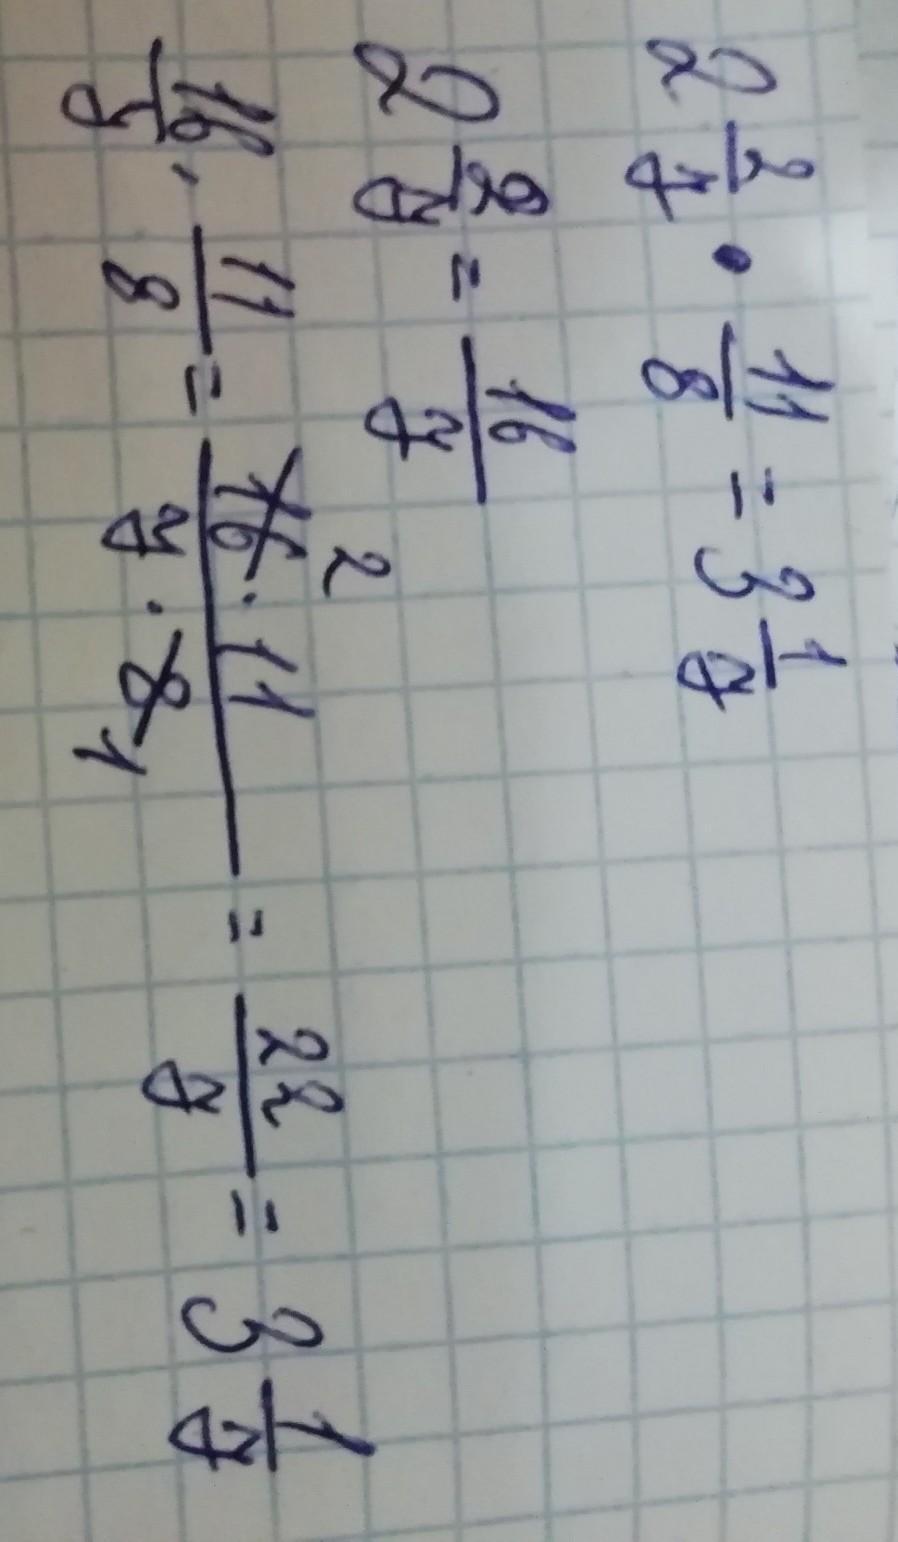 2 2/7 · 11/8 = 3 1/7
2 2/7 = 16/7
16/7 · 11/8 = 16 · 11 / 7 · 8 = 22/7 = 3 1/7
2
1